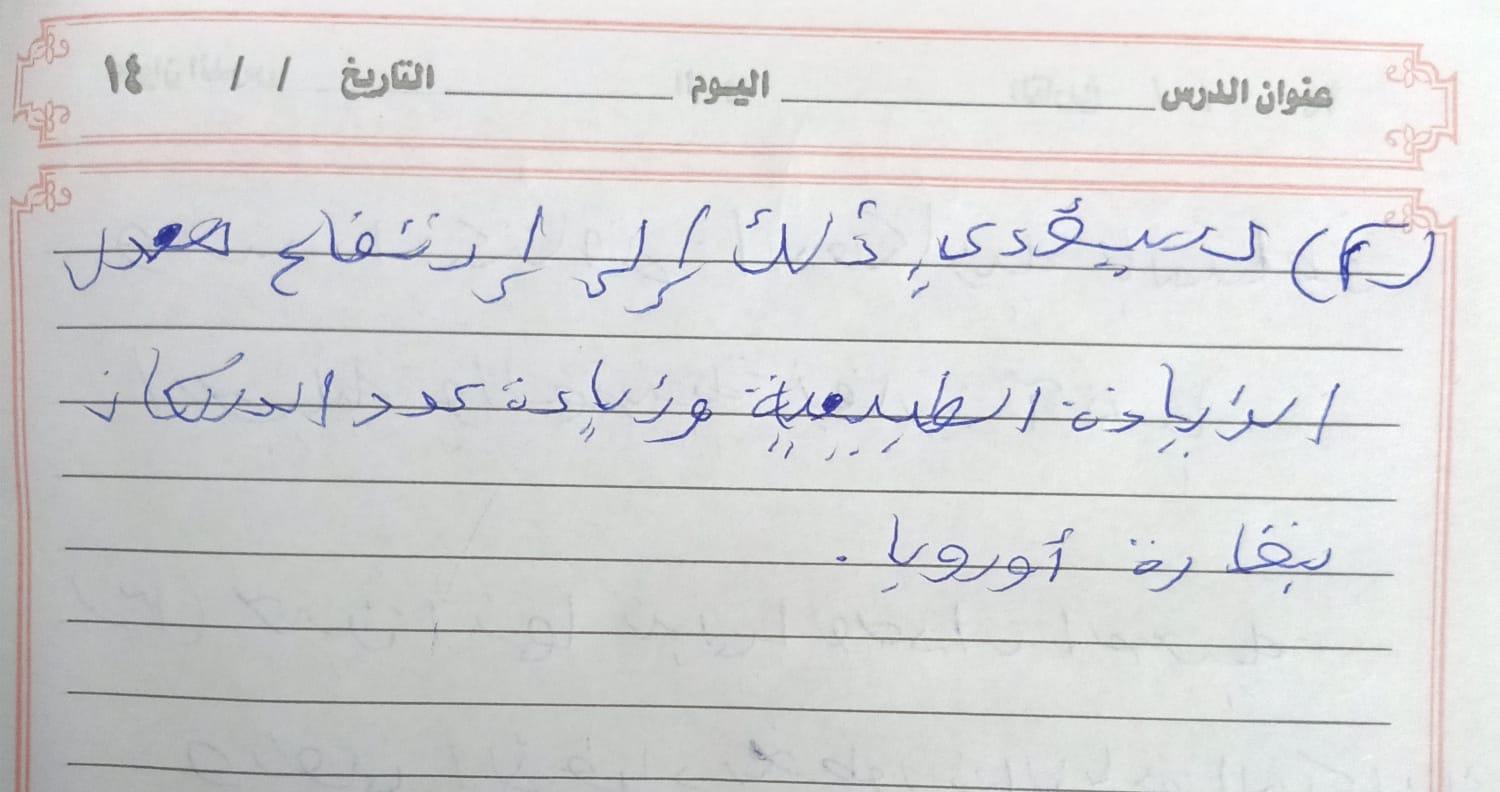 عنوان الدرس اليوم التاريخ / / ١٤
(٢) سيؤدى ذلك إلى إرتفاع معدل
الزيادة الطبيعية وزيادة عدد السكان
بقارة أوروبا .